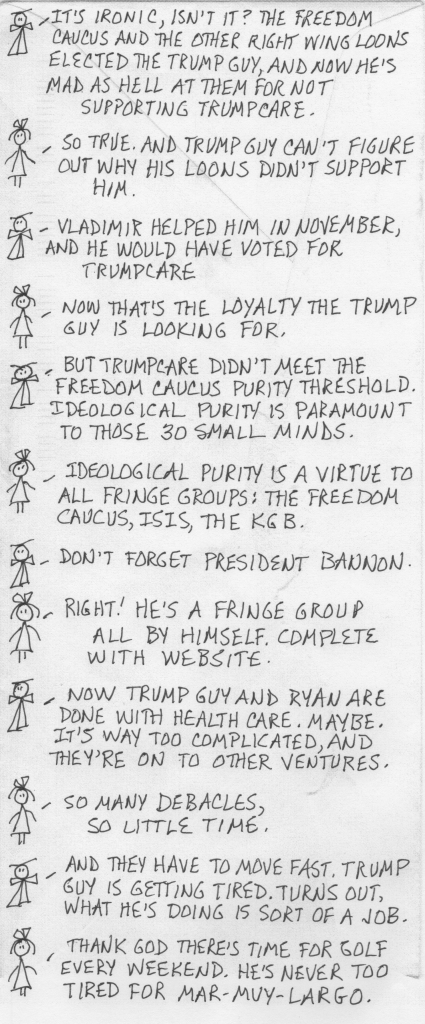 - IT'S IRONIC, ISN'T IT? THE FREEDOM
CAUCUS AND THE OTHER RIGHT WING LOONS
ELECTED THE TRUMP GUY, AND NOW HE'S
MAD AS HELL AT THEM FOR NOT
SUPPORTING TRUMPCARE.
- SO TRUE. AND TRUMP GUY CAN'T FIGURE
OUT WHY HIS LOONS DIDN'T SUPPORT
HIM.
- VLADIMIR HELPED HIM IN NOVEMBER,
AND HE WOULD HAVE VOTED FOR
TRUMPCARE
- NOW THAT'S THE LOYALTY THE TRUMP
GUY IS LOOKING FOR.
- BUT TRUMPCARE DIDN'T MEET THE
FREEDOM CAUCUS PURITY THRESHOLD.
IDEOLOGICAL PURITY IS PARAMOUNT
TO THOSE 30 SMALL MINDS.
- IDEOLOGICAL PURITY IS A VIRTUE TO
ALL FRINGE GROUPS: THE FREEDOM
CAUCUS, ISIS, THE KGB.
- DON'T FORGET PRESIDENT BANNON.
- RIGHT! HE'S A FRINGE GROUP
ALL BY HIMSELF. COMPLETE
WITH WEBSITE.
- NOW TRUMP GUY AND RYAN ARE
DONE WITH HEALTH CARE. MAYBE.
IT'S WAY TOO COMPLICATED, AND
THEY'RE ON TO OTHER VENTURES.
- SO MANY DEBACLES,
SO LITTLE TIME.
- AND THEY HAVE TO MOVE FAST. TRUMP
GUY IS GETTING TIRED. TURNS OUT,
WHAT HE'S DOING IS SORT OF A JOB.
- THANK GOD THERE'S TIME FOR GOLF
EVERY WEEKEND. HE'S NEVER TOO
TIRED FOR MAR-MUY-LARGO.